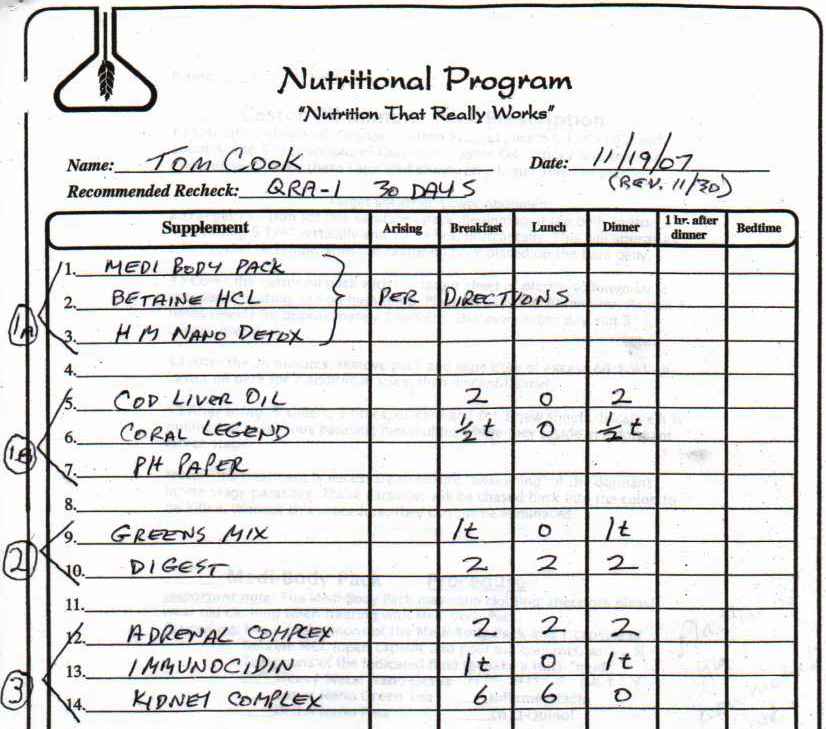 Nutritional Program
"Nutrition That Really Works"
Name: TOM COOK Date: 11/19/07
Recommended Recheck: QRA-1 30 DAYS (REV. 11/30)
Supplement Arising Breakfast Lunch Dinner 1 hr. after dinner Bedtime
1A
1. MEDI BODY PACK
2. BETAINE HCL PER DIRECTIONS
3. HM NANO DETOX
4.
1B
5. COD LIVER OIL 2 0 2
6. CORAL LEGEND ½ t 0 ½ t
7. PH PAPER
8.
2
9. GREENS MIX 1t 0 1t
10. DIGEST 2 2 2
11.
3
12. ADRENAL COMPLEX 2 2 2
13. IMMUNOCIDIN 1t 0 1t
14. KIDNEY COMPLEX 6 6 0